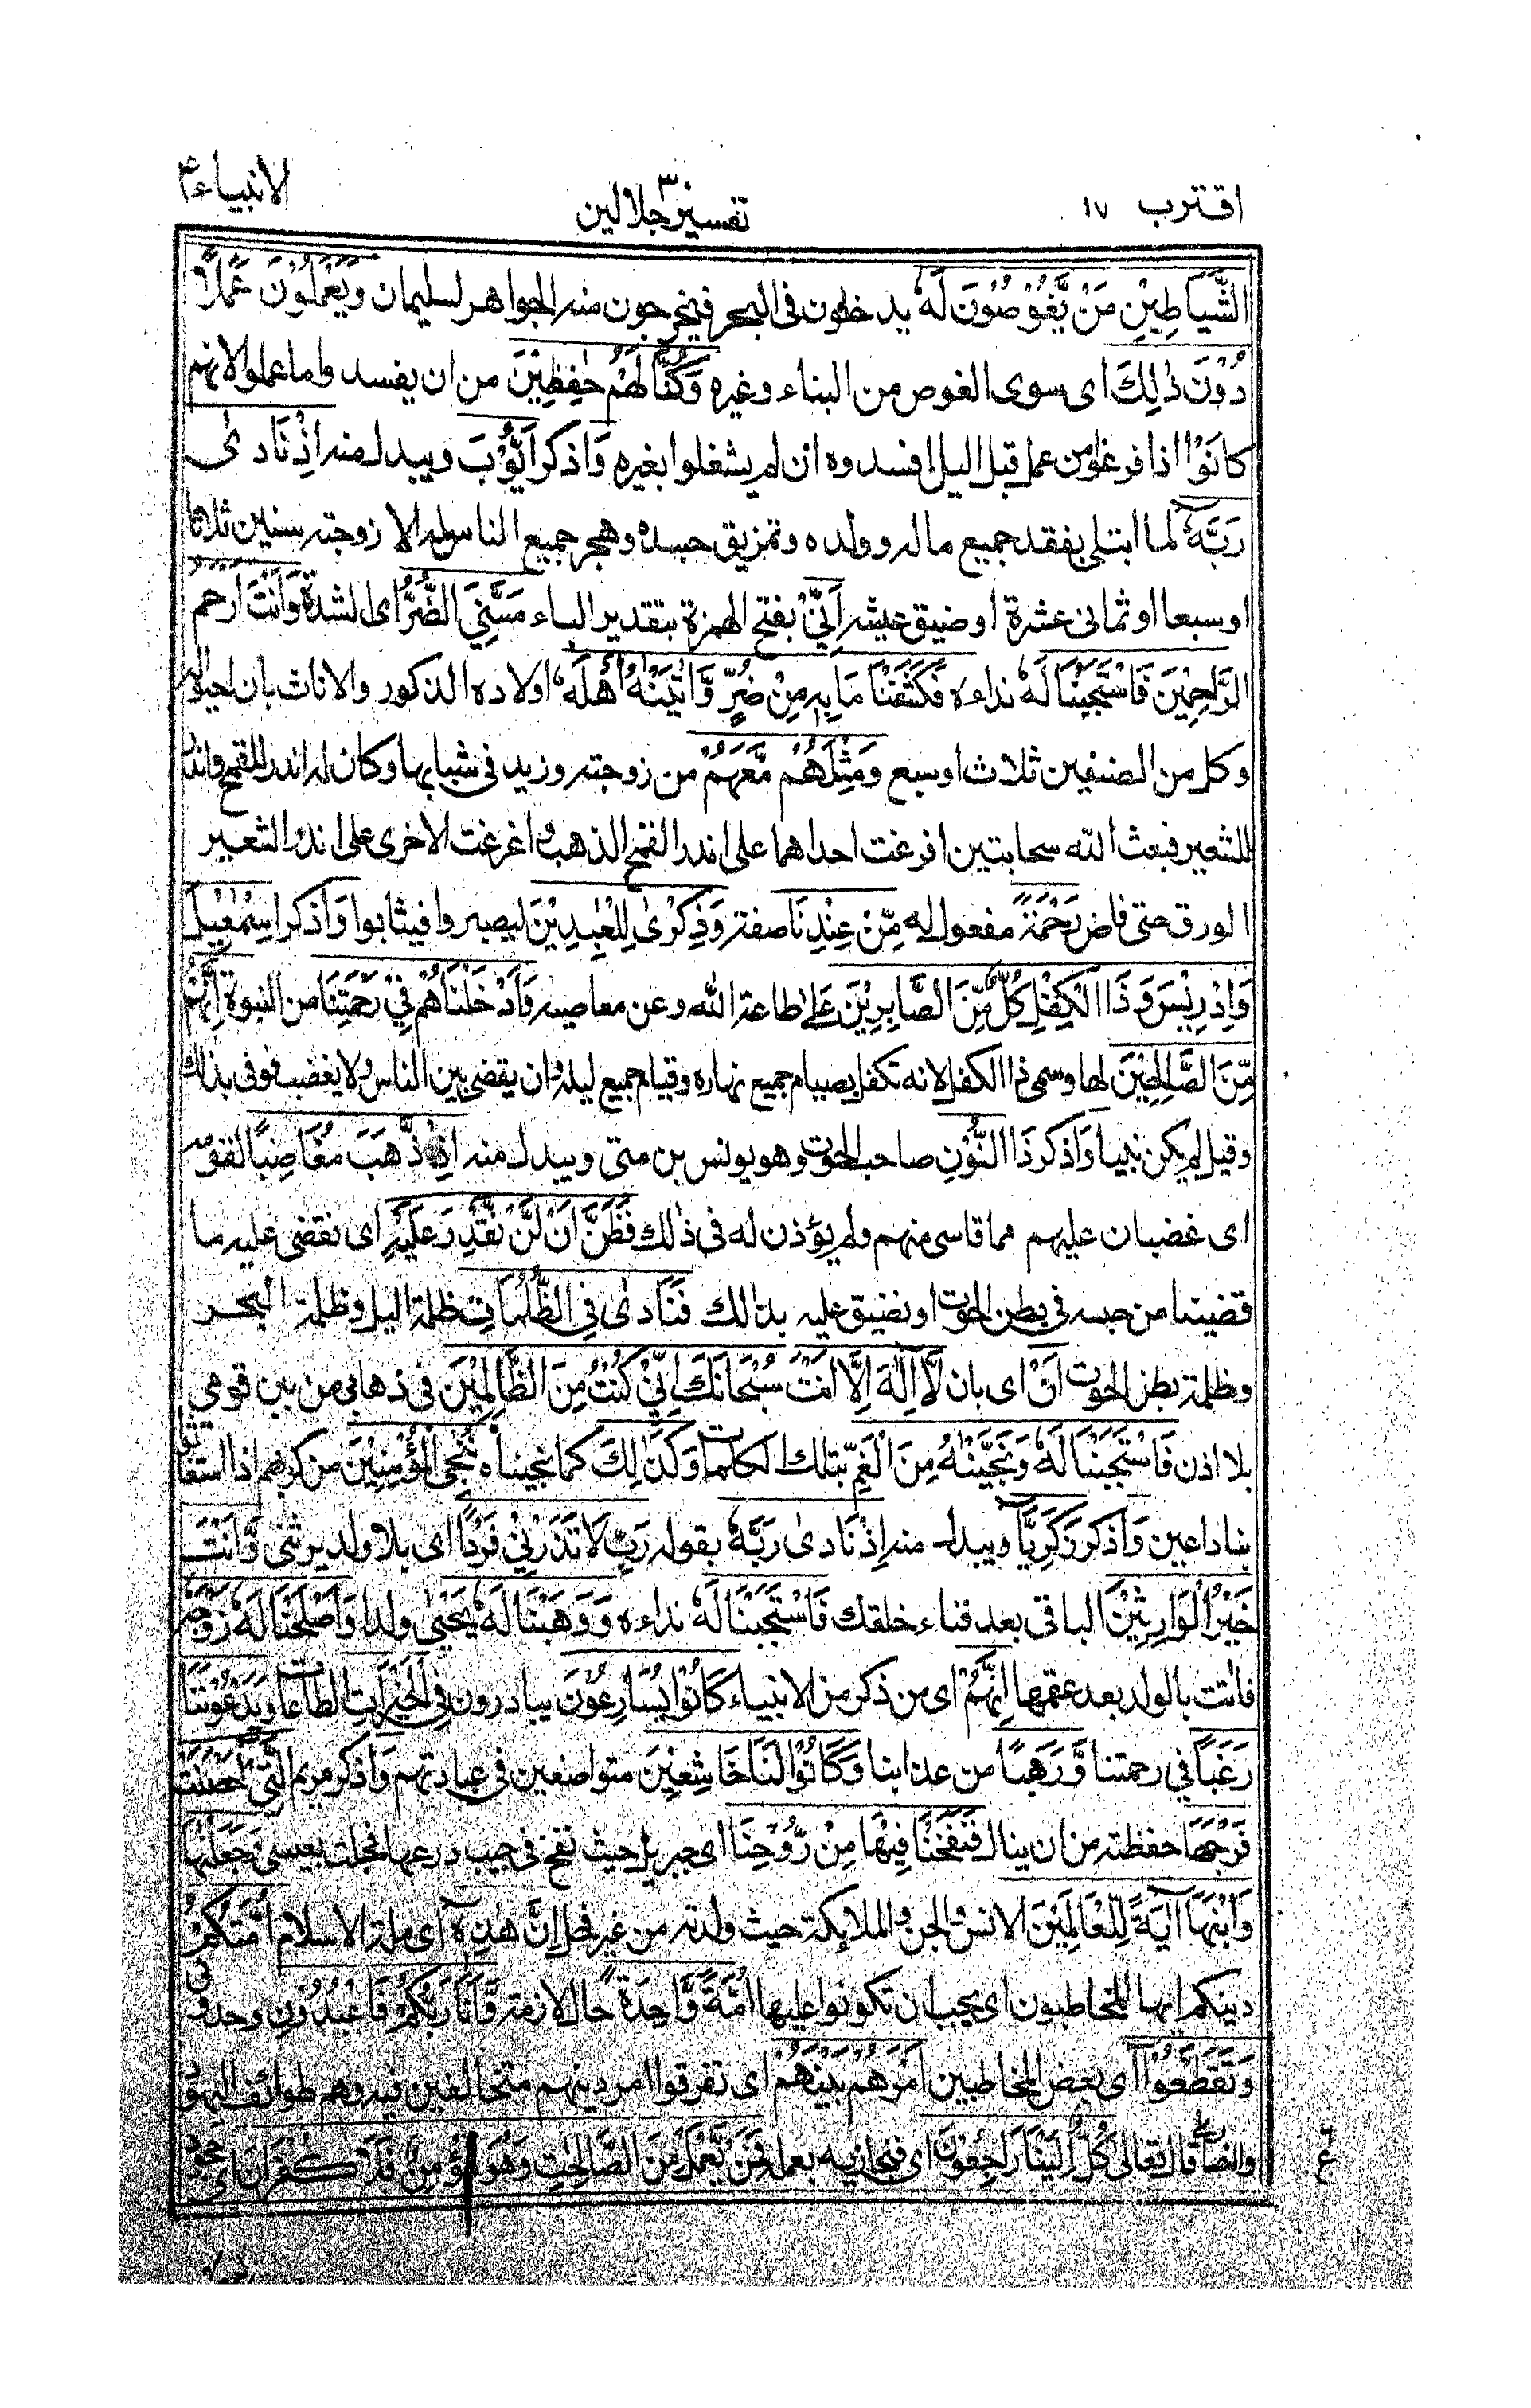 اقترب ١٧
تفسير جلالين ٣
الانبياء
الشَّيَاطِيْنِ مَنْ يَّغُوْصُوْنَ لَهٗ يدخلون فى البحر فيخرجون منه الجواهر لسليمان وَيَعْمَلُوْنَ عَمَلًا
دُوْنَ ذٰلِكَ اى سوى الغوص من البناء وغيره وَكُنَّا لَهُمْ حٰفِظِيْنَ من ان يفسدوا ما عملوا لانهم
كانوا اذا فرغوا من عمل قبل اليل افسدوه ان لم يشغلوا بغيره وَاذكر اَيُّوْبَ ويبدل منه اِذْ نَادٰى
رَبَّهٗ لما ابتلى بفقد جميع ماله وولده وتمزيق جسده وهجر جميع الناس له الا زوجته سنين ثلاثا
او سبعا او ثمانى عشرة او ضيق عيشه اَنِّىْ بفتح الهمزة بتقدير الباء مَسَّنِيَ الضُّرُّ اى الشدة وَاَنْتَ اَرْحَمُ
الرّٰحِمِيْنَ فَاسْتَجَبْنَا لَهٗ نداءه فَكَشَفْنَا مَا بِهٖ مِنْ ضُرٍّ وَّاٰتَيْنٰهُ اَهْلَهٗ اولاده الذكور والاناث بان احيوا له
وكل من الصنفين ثلاث او سبع وَمِثْلَهُمْ مَّعَهُمْ من زوجته وزيد فى شبابها وكان له اندر للقمح واندر
للشعير فبعث الله سحابتين افرغت احداهما على اندر القمح الذهب وافرغت الاخرى على اندر الشعير
الورق حتى فاض رَحْمَةً مفعول له مِّنْ عِنْدِنَا صفة وَذِكْرٰى لِلْعٰبِدِيْنَ ليصبروا فيثابوا وَاذكر اِسْمٰعِيْلَ
وَاِدْرِيْسَ وَذَا الْكِفْلِ كُلٌّ مِّنَ الصَّابِرِيْنَ عَلٰى طاعة الله وعن معاصيه وَاَدْخَلْنَاهُمْ فِيْ رَحْمَتِنَا من النبوة اِنَّهُمْ
مِّنَ الصَّالِحِيْنَ لها وسمى ذا الكفل لانه تكفل بصيام جميع نهاره وقيام جميع ليله وان يقضى بين الناس ولا يغضب فوفى بذلك
وقيل لم يكن نبيا وَاذكر ذَا النُّوْنِ صاحب الحوت وهو يونس بن متى ويبدل منه اِذْ ذَّهَبَ مُغَاضِبًا لقومه
اى غضبان عليهم مما قاسى منهم ولم يؤذن له فى ذلك فَظَنَّ اَنْ لَّنْ نَّقْدِرَ عَلَيْهِ اى نقضى عليه ما
قضينا من حبسه فى بطن الحوت او نضيق عليه بذالك فَنَادٰى فِى الظُّلُمَاتِ ظلمة اليل وظلمة البحر
وظلمة بطن الحوت اَنْ اى بان لَّآ اِلٰهَ اِلَّا اَنْتَ سُبْحَانَكَ اِنِّيْ كُنْتُ مِنَ الظَّالِمِيْنَ فى ذهابى من بين قومى
بلا اذن فَاسْتَجَبْنَا لَهٗ وَنَجَّيْنٰهُ مِنَ الْغَمِّ بتلك الكلمات وَكَذٰلِكَ كما نجيناه نُنْجِى الْمُؤْمِنِيْنَ من كربهم اذا استغاثوا
بنا داعين وَاذكر زَكَرِيَّآ ويبدل منه اِذْ نَادٰى رَبَّهٗ بقوله رَبِّ لَا تَذَرْنِيْ فَرْدًا اى بلا ولد يرثنى وَّاَنْتَ
خَيْرُ الْوَارِثِيْنَ الباقى بعد فناء خلقك فَاسْتَجَبْنَا لَهٗ نداءه وَوَهَبْنَا لَهٗ يَحْيٰى ولدا وَاَصْلَحْنَا لَهٗ زَوْجَهٗ
فاتت بالولد بعد عقمها اِنَّهُمْ اى من ذكر من الانبياء كَانُوْا يُسَارِعُوْنَ يبادرون فِى الْخَيْرَاتِ الطاعات وَيَدْعُوْنَنَا
رَغَبًا فى رحمتنا وَّرَهَبًا من عذابنا وَكَانُوْا لَنَا خَاشِعِيْنَ متواضعين فى عبادتهم وَاذكر مريم الَّتِيْ اَحْصَنَتْ
فَرْجَهَا حفظته من ان ينال فَنَفَخْنَا فِيْهَا مِنْ رُّوْحِنَا اى جبريل حيث نفخ فى جيب درعها فحملت بعيسى وَجَعَلْنٰهَا
وَابْنَهَآ اٰيَةً لِّلْعَالَمِيْنَ الانس والجن والملائكة حيث ولدته من غير فحل اِنَّ هٰذِهٖٓ اى ملة الاسلام اُمَّتُكُمْ
دينكم ايها المخاطبون اى يجب ان تكونوا عليها اُمَّةً وَّاحِدَةً حال لازمة وَّاَنَا رَبُّكُمْ فَاعْبُدُوْنِ وحدونى
وَتَقَطَّعُوْٓا اى بعض المخاطبين اَمْرَهُمْ بَيْنَهُمْ اى تفرقوا امر دينهم متخالفين فيه وهم طوائف اليهود
والنصارى قال تعالى كُلٌّ اِلَيْنَا رَاجِعُوْنَ اى فنجازيه بعمله فَمَنْ يَّعْمَلْ مِنَ الصَّالِحٰتِ وَهُوَ مُؤْمِنٌ فَلَا كُفْرَانَ اى جحود
ع